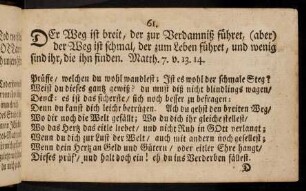 61.
DEr Weg ist breit, der zur Verdamniß führet, (aber)
der Weg ist schmal, der zum Leben führet, und wenig
sind ihr, die ihn finden. Matth. 7. v. 13. 14.
Prüffe, welchen du wohl wandlest; Ist es wohl der schmale Steg?
Weist du dieses gantz gewiß? du must diß nicht blindlings wagen,
Denck: es ist das sicherste, sich noch besser zu befragen:
Denn du kanst dich leicht betrügen. Ach du gehst den breiten Weg,
Wo dir noch die Welt gefällt; Wo du dich ihr gleichstellest;
Wo das Hertz das eitle liebet, und nicht Ruh in GOtt verlangt;
Wenn du dich zur Lust der Welt, auch mit andern noch gesellest;
Wenn dein Hertz an Geld und Gütern, oder eitler Ehre hangt;
Dieses prüf, und halt doch ein! eh du ins Verderben fällest.
D